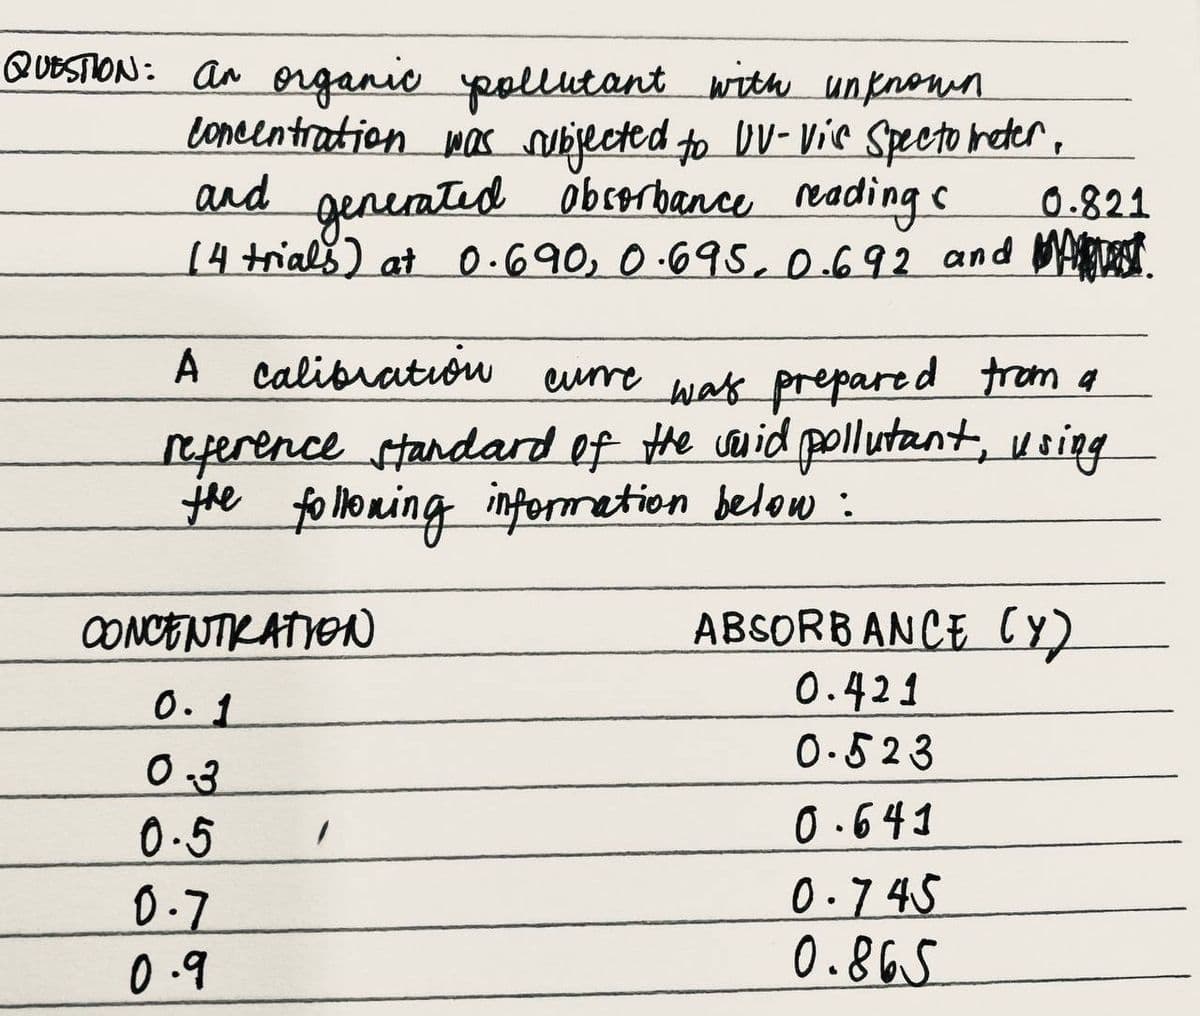 QUESTION: An organic pollutant with unknown
concentration was subjected to UV-Vis Spectometer,
and generated absorbance readings 0.821
(4 trials) at 0.690, 0.695, 0.692 and
A calibration curve was prepared from a
reference standard of the said pollutant, using
the following information below :
CONCENTRATION ABSORBANCE (Y)
0.1 0.421
0.3 0.523
0.5 0.641
0.7 0.745
0.9 0.865